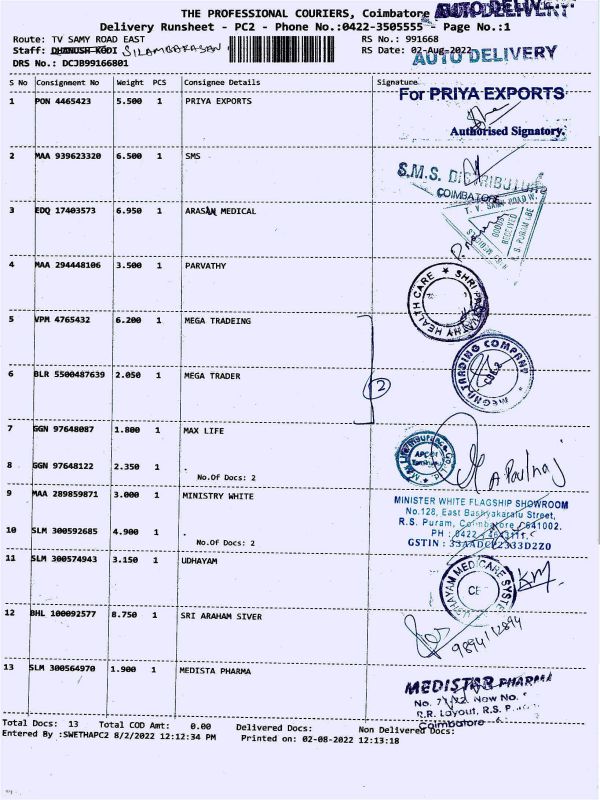 THE PROFESSIONAL COURIERS, Coimbatore AUTO DELIVERY
Delivery Runsheet - PC2 - Phone No.:0422-3505555 - Page No.:1
Route: TV SAMY ROAD EAST RS No.: 991668
Staff: DHANUSH KODI SILAMBARASAN RS Date: 02-Aug-2022
AUTO DELIVERY
DRS No.: DCJB99166801
S No Consignment No Weight PCS Consignee Details Signature
1 PON 4465423 5.500 1 PRIYA EXPORTS
For PRIYA EXPORTS
Authorised Signatory.
2 MAA 939623320 6.500 1 SMS
S.M.S. DISTRIBUTORS
COIMBATORE
3 EDQ 17403573 6.950 1 ARASAN MEDICAL
T. V. SAMY ROAD W.
GOODS
RECEIVED
R.S. PURAM CBE
4 MAA 294448106 3.500 1 PARVATHY
SHRI PARVATHY HEALTH CARE
5 VPM 4765432 6.200 1 MEGA TRADEING
6 BLR 5500487639 2.050 1 MEGA TRADER
2
MEGHA TRADING COMPANY
CBE-2
7 GGN 97648087 1.800 1 MAX LIFE
8 GGN 97648122 2.350 1
No.Of Docs: 2
Max Life Insurance Co.
A Paulraj
9 MAA 289859871 3.000 1 MINISTRY WHITE
MINISTER WHITE FLAGSHIP SHOWROOM
No.128, East Bashyakaralu Street,
R.S. Puram, Coimbatore - 641002.
10 SLM 300592685 4.900 1
No.Of Docs: 2
PH : 0422
GSTIN :
11 SLM 300574943 3.150 1 UDHAYAM
UDHAYAM MEDICARE SYSTEMS
12 BHL 100092577 8.750 1 SRI ARAHAM SIVER
9894112894
13 SLM 300564970 1.900 1 MEDISTA PHARMA
MEDISTAR PHARMA
No. New No.
R.R. Layout, R.S.
Coimbatore
Total Docs: 13 Total COD Amt: 0.00 Delivered Docs: Non Delivered Docs:
Entered By :SWETHAPC2 8/2/2022 12:12:34 PM Printed on: 02-08-2022 12:13:18